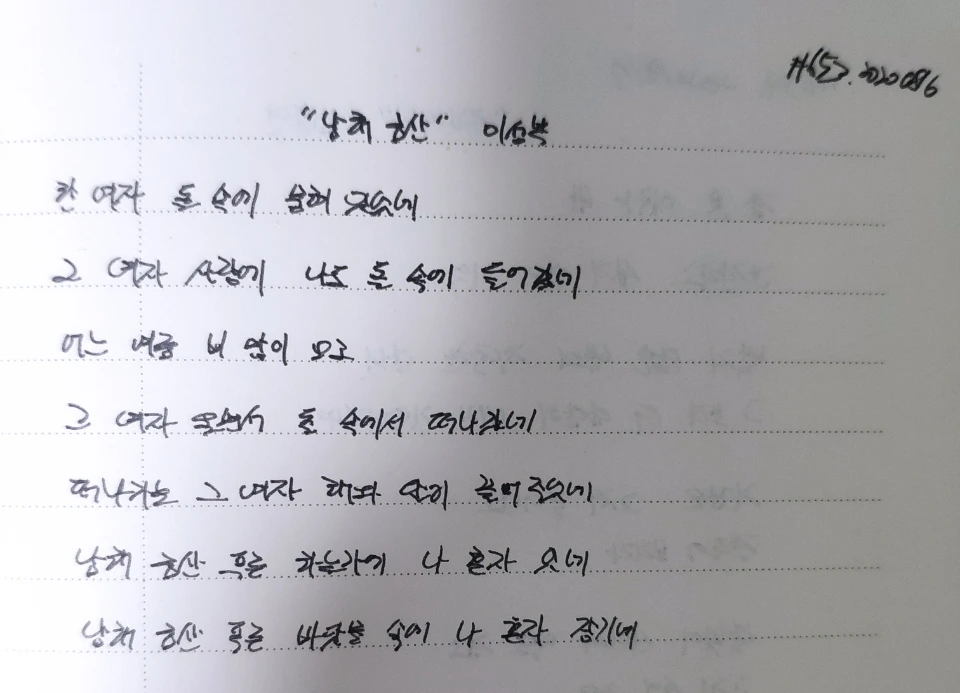 2020 08 6
"남해 금산" 이성복
한 여자 돌 속에 묻혀 있었네
그 여자 사랑에 나도 돌 속에 들어갔네
어느 여름 비 많이 오고
그 여자 울면서 돌 속에서 떠나갔네
떠나가는 그 여자 해와 달이 끌어 주었네
남해 금산 푸른 하늘가에 나 혼자 있네
남해 금산 푸른 바닷물 속에 나 혼자 잠기네